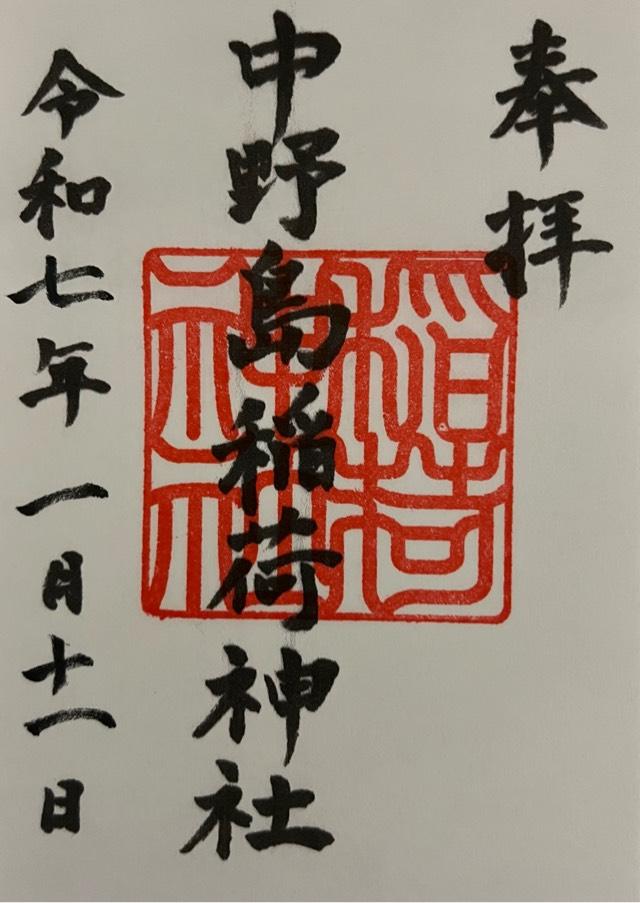 奉拝
中野島稲荷神社
令和七年一月十一日
稲荷
神社